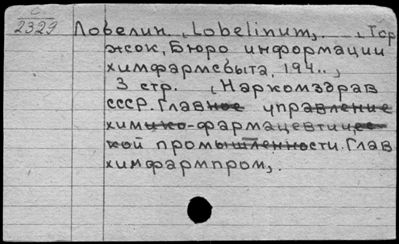 С
2329
Ловелин. (Lobelinum), . (Тор
жок, Бюро информации
химфармсбыта, 194..)
3 стр. (Наркомздрав
СССР. Главное управление
химико-фармацевтичес-
кой промышленности. Глав
химфармпром).